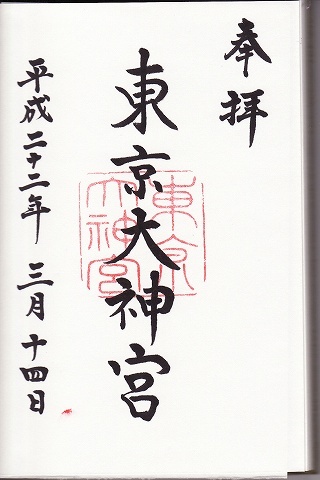 奉拝
東京大神宮
東京
大神宮
平成二十二年 三月十四日